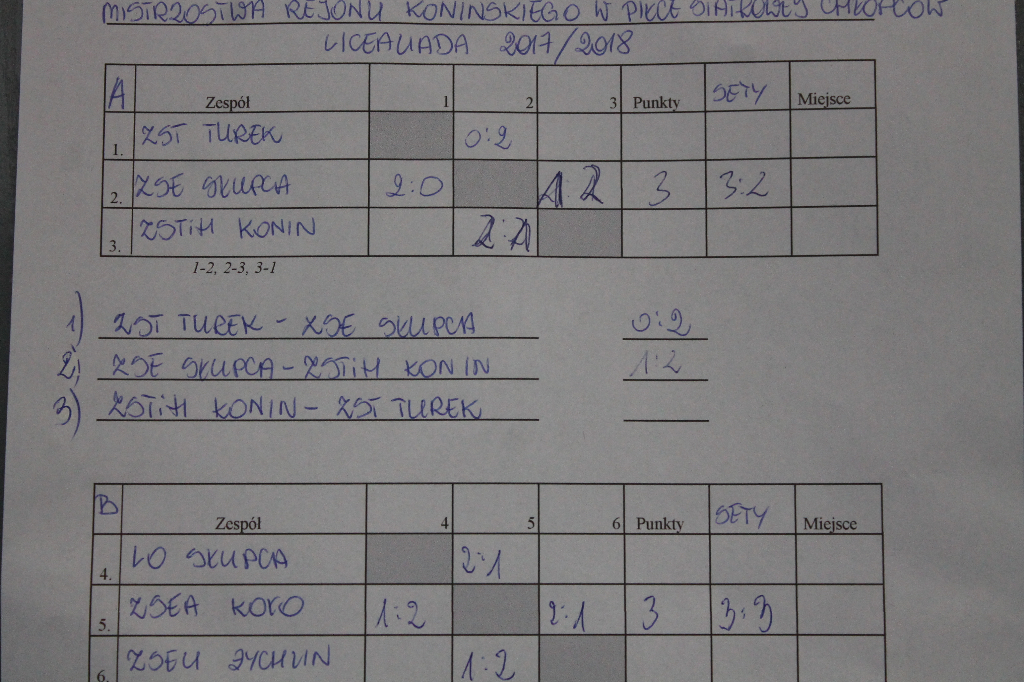 MISTRZOSTWA REJONU KONIŃSKIEGO W PIŁCE SIATKOWEJ CHŁOPCÓW
LICEALIADA 2017/2018
A Zespół 1 2 3 Punkty SETY Miejsce
1. ZST TUREK 0:2
2. ZSE SŁUPCA 2:0 1:2 3 3:2
3. ZSTiH KONIN 2:1
1-2, 2-3, 3-1
1) ZST TUREK - ZSE SŁUPCA 0:2
2) ZSE SŁUPCA - ZSTiH KONIN 1:2
3) ZSTiH KONIN - ZST TUREK
B Zespół 4 5 6 Punkty SETY Miejsce
4. LO SŁUPCA 2:1
5. ZSEA KOŁO 1:2 2:1 3 3:3
6. ZSEU ŻYCHLIN 1:2